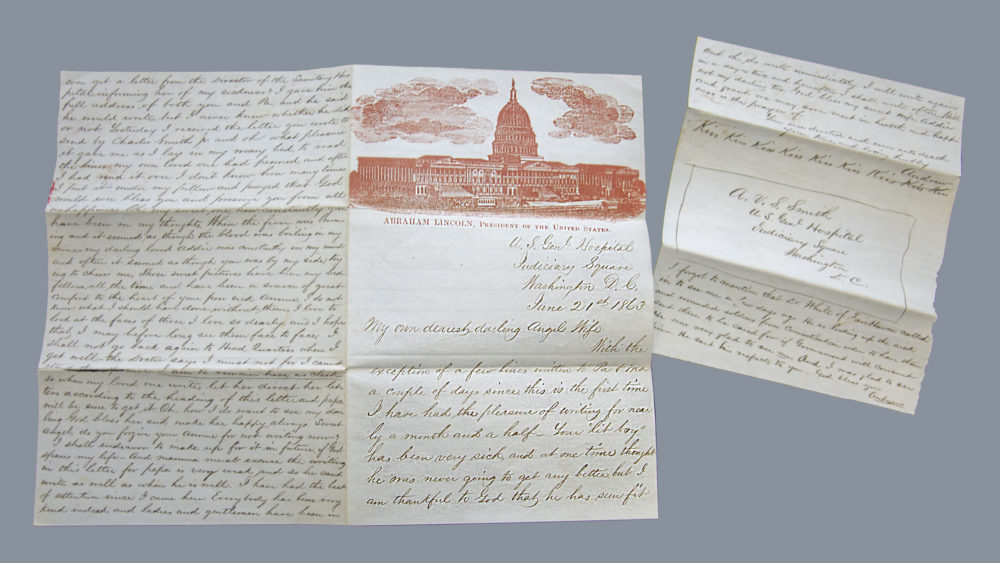 son get a letter from the Director of the Sanitary Hos
pital informing her of my sickness? I gave him the
full address of both you and Pa, and he said
he would write but I never knew whether he did
or not. Yesterday I received the letter you wrote to
send by Charlie Smith Jr and oh! what pleasure
it gave me as I lay in my weary bed to read
the lines my own loved one had penned and after
I had read it over I dont know how many times
I put it under my pillow and prayed that God
would ever bless you and preserve you from all
sweet one how constantly you
have been in my thoughts. When the fever was burn
ing and it seemed as though the blood was boiling in my
veins my darling loved Addie was constantly in my mind
and often it seemed as though you was by my side try
ing to cheer me. Those sweet pictures have been my bed
fellows all the time and have been a source of great
comfort to the heart of your poor sick Annie. I do not
know what I should have done without them, I love to
look at the faces of those I love so dearly, and I hope
that I may before long see them face to face, I
shall not go back again to Head Quarters when I
get well. the Doctor says I must not for I cannot
I am to remain here as clerk
so when my loved one writes let her direct her let
ters according to the heading of this letter and papa
will be sure to get it Oh, how I do want to see my dar
ling God bless her and make her happy always Sweet
angel do you forgive your Annie for not writing now?
I shall endeavor to make up for it in future if God
spares my life. And mamma must excuse the writing
in this letter for papa is very weak and so he cant
write as well as when he is well. I have had the best
of attention since I came here Everybody has been very
kind indeed and ladies and gentlemen have been in
ABRAHAM LINCOLN, President of the United States.
U. S. Genl Hospital
Judiciary Square
Washington D. C.
June 21st 1863
My own dearest darling Angel Wife
With the
exception of a few lines written to Pa
a couple of days since this is the first time
I have had the pleasure of writing for near
ly a month and a half. Your "lit boy"
has been very sick, and at one time thought
he was never going to get any better but I
am thankful to God that he has seen fit
and do, do write immediately I will write again
in a day or two and after I shall write often fall
not my darling. Good bye my sweet wife Addie
God bless you and keep in health and happy
and grant we may
soon is the prayer of
Your devoted and ever
husband
Andrew
Kiss Kiss Kiss Kiss Kiss Kiss Kiss Kiss Kiss
A. V. S. Smith
U. S. Genl Hospital
Judiciary Square
Washington
D. C.
I forgot to mention that Dr White of Fair Haven called
in to see me a few days ago. He is looking up the sick
and wounded soldiers from Connecticut when to have them
sent home to be cared for if Government will consent
He was very glad to see me. And I was glad to see
him. He sent his respects to you. God bless you
Andrew